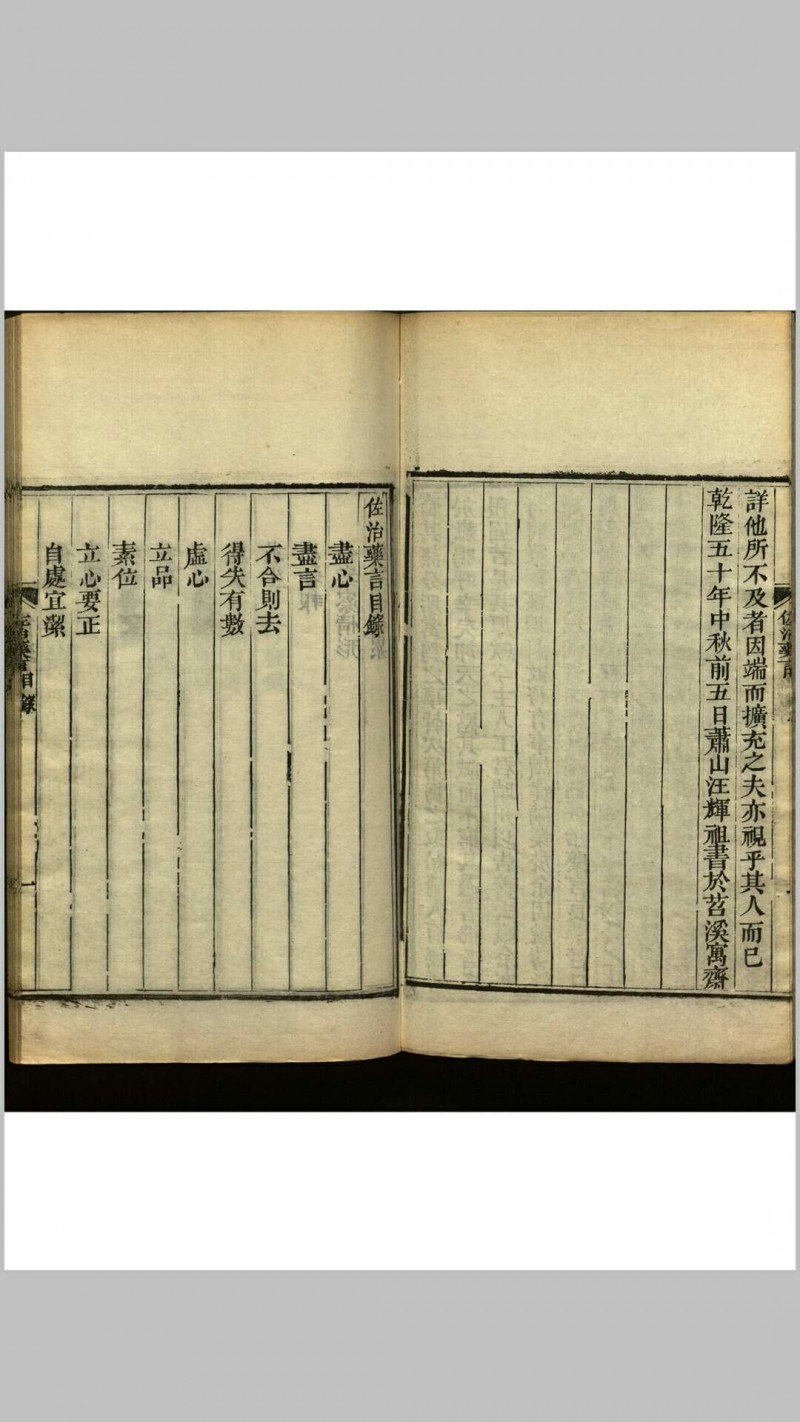 詳他所不及者因端而擴充之夫亦視乎其人而已
乾隆五十年中秋前五日蕭山汪輝祖書於苕溪寓齋
佐治藥言
佐治藥言目錄
盡心
盡言
不合則去
得失有數
虛心
立品
素位
立心要正
自處宜潔
佐治藥言目錄
一